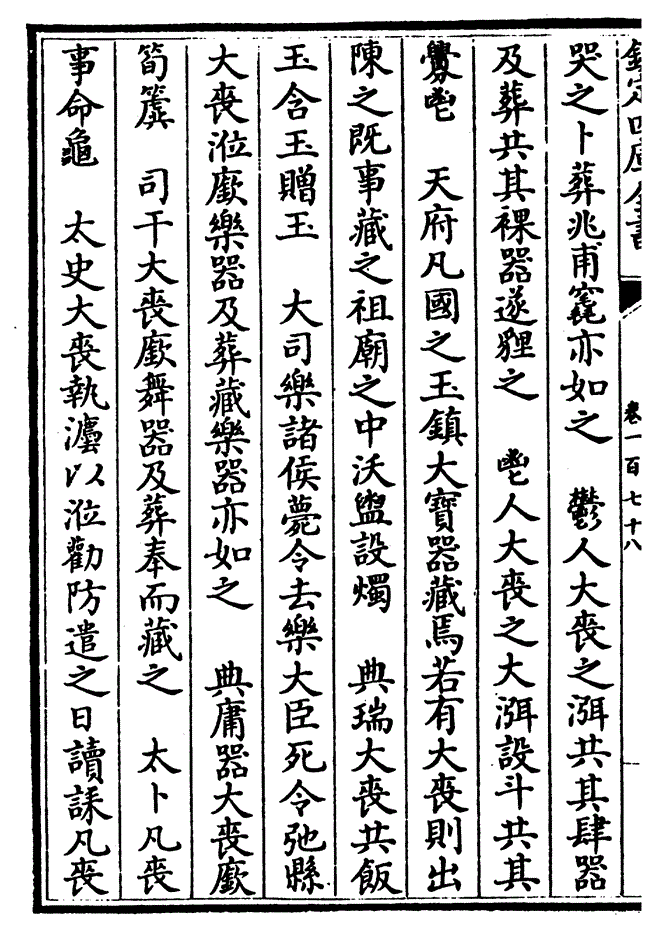 欽定四庫全書
卷一百七十八
哭之卜葬兆甫竁亦如之　鬱人大喪之渳共其肆器
及葬共其裸器遂貍之　鬯人大喪之大渳設斗共其
釁鬯　天府凡國之玉鎮大寶器藏焉若有大喪則出
陳之既事藏之祖廟之中沃盥設燭　典瑞大喪共飯
玉含玉贈玉　大司樂諸侯薨令去樂大臣死令弛縣
大喪涖廞樂器及葬藏樂器亦如之　典庸器大喪廞
筍簴　司干大喪廞舞器及葬奉而藏之　太卜凡喪
事命龜　太史大喪執灋以涖勸防遣之日讀誄凡喪